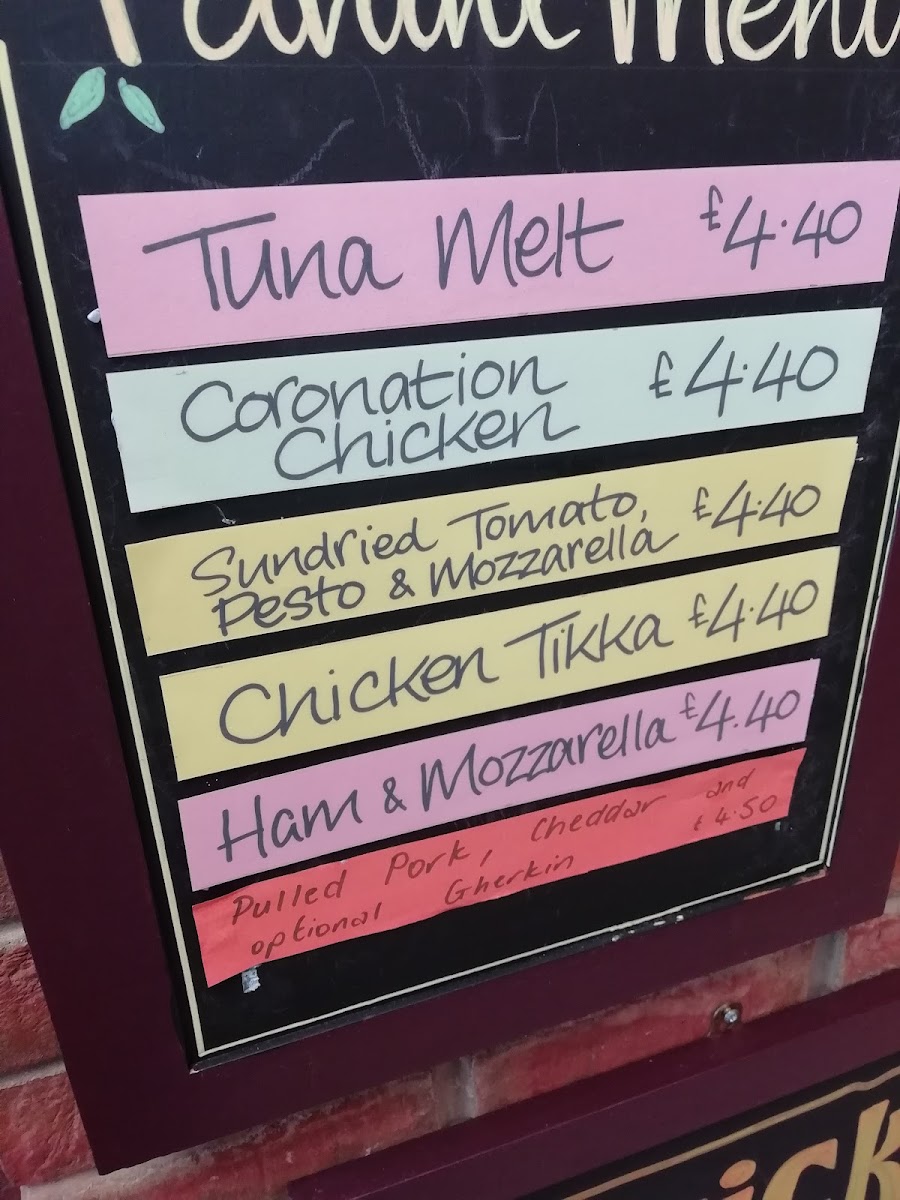 Panini Menu
Tuna Melt £4.40
Coronation £4.40
Chicken
Sundried Tomato, £4.40
Pesto & Mozzarella
Chicken Tikka £4.40
Ham & Mozzarella £4.40
Pulled Pork, Cheddar and
optional Gherkin £4.50